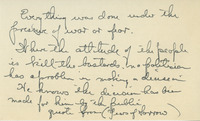 Everything was done under the
pressure of war or fear.
When the attitude of the people
is kill the bastards, a politician
has a problem in making a decision.
He knows the decision has been
made for him by the public
quote from (Years of Sorrow)